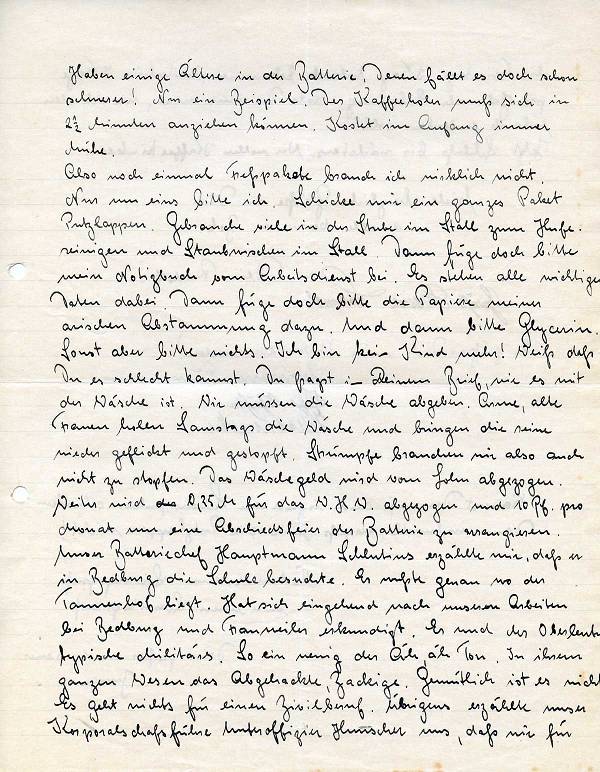 Haben einige Ältere in der Batterie, Denen fällt es doch schon
schwerer! Nur ein Beispiel. Der Kaffeeholer muß sich in
2½ Minuten anziehen können. Kostet im Anfang immer
Mühe.
Also noch einmal Freßpakete brauch ich wirklich nicht.
Nur um eins bitte ich. Schicke mir ein ganzes Paket
Putzlappen. Gebrauche viele in der Stube im Stall zum Hufe-
reinigen und Staubwischen im Stall. Dann füge doch bitte
mein Notizbuch vom Arbeitsdienst bei. Es stehen alle wichtigen
Daten dabei. Dann füge doch bitte die Papiere meiner
arischen Abstammung dazu. Und dann bitte Glycerin.
Sonst aber bitte nichts. Ich bin kein Kind mehr! Weiß daß
Du es schlecht kannst. Du fragst in Deinem Brief, wie es mit
der Wäsche ist. Wir müssen die Wäsche abgeben. Arme, alte
Frauen holen Samstags die Wäsche und bringen die reine
wieder geflickt und gestopft. Strümpfe brauchen wir also auch
nicht zu stopfen. Das Wäschegeld wird vom Sohn abgezogen.
Weiter wird 0,35 M für das W.H.W. abgezogen und 10 Pf. pro
Monat um eine Abschiedsfeier der Batterie zu arrangieren.
Unser Batteriechef Hauptmann erzählte mir, daß er
in Bedburg die Schule besuchte. Er wußte genau wo der
Tannenhof liegt. Hat sich eingehend nach unseren Arbeiten
bei Bedburg und Frauweiler erkundigt. Er und der Oberleutn.
typische Militärs. So ein wenig der Äh, äh Ton. In ihrem
ganzen Wesen das Abgehackte, Zackige. Gemütlich ist es nicht
Es geht nichts für einen Zivilberuf. Übrigens erzählte unser
Korporalschaftsführer Unteroffizier uns, daß wir für